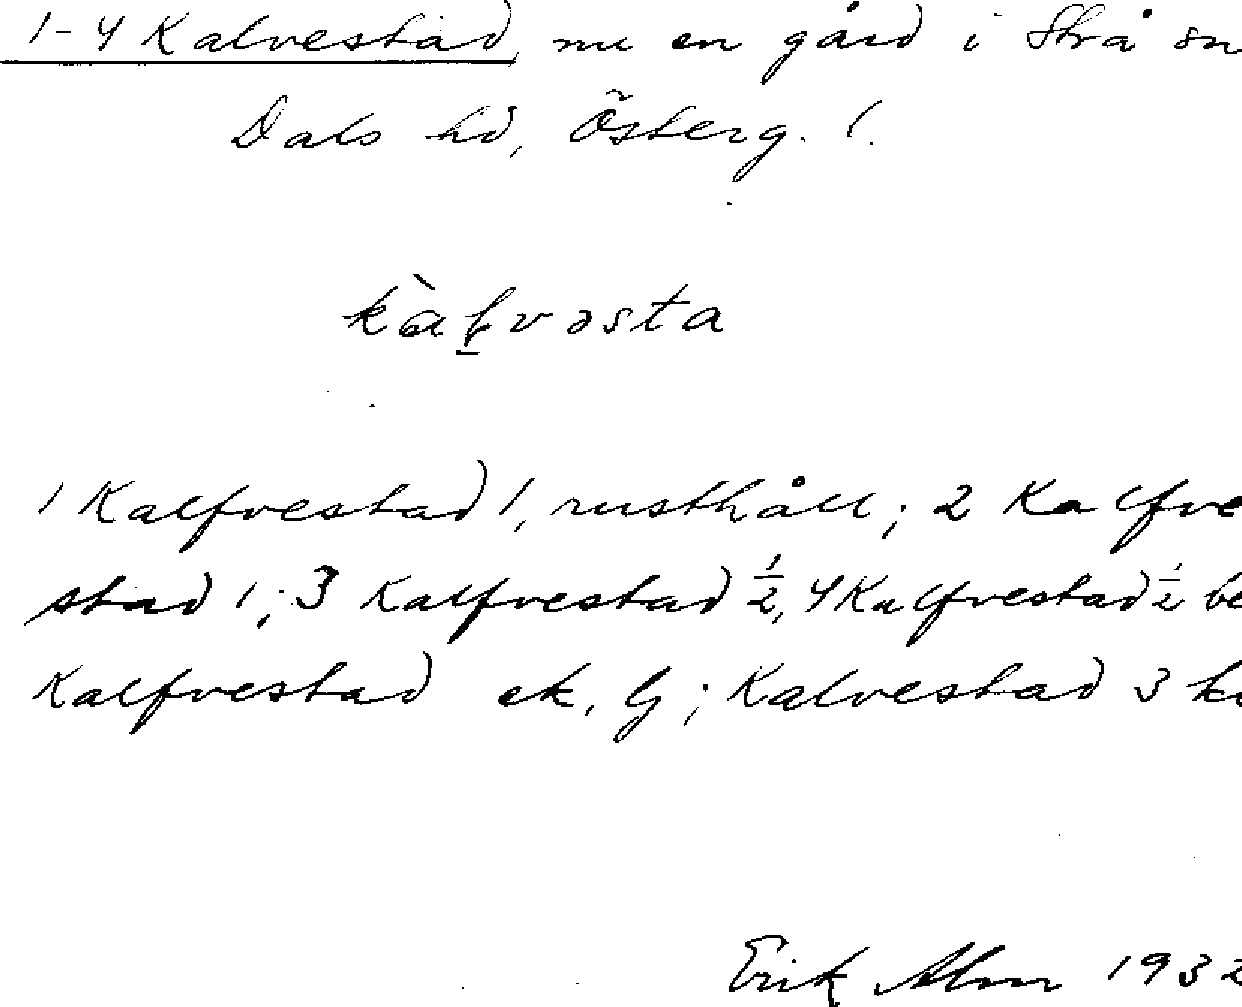 1-4 Kalvestad, nu en gård i Strå sn
Dals hd, Österg. l.
kàl̠vəsta
1 Kalfvestad 1, rusthåll; 2 Kalfve
stad 1; 3 Kalfvestad ½, 4 Kalfvestad ½ be
Kalfvestad ek, G; Kalvestad 3 k
Erik Alm 1932